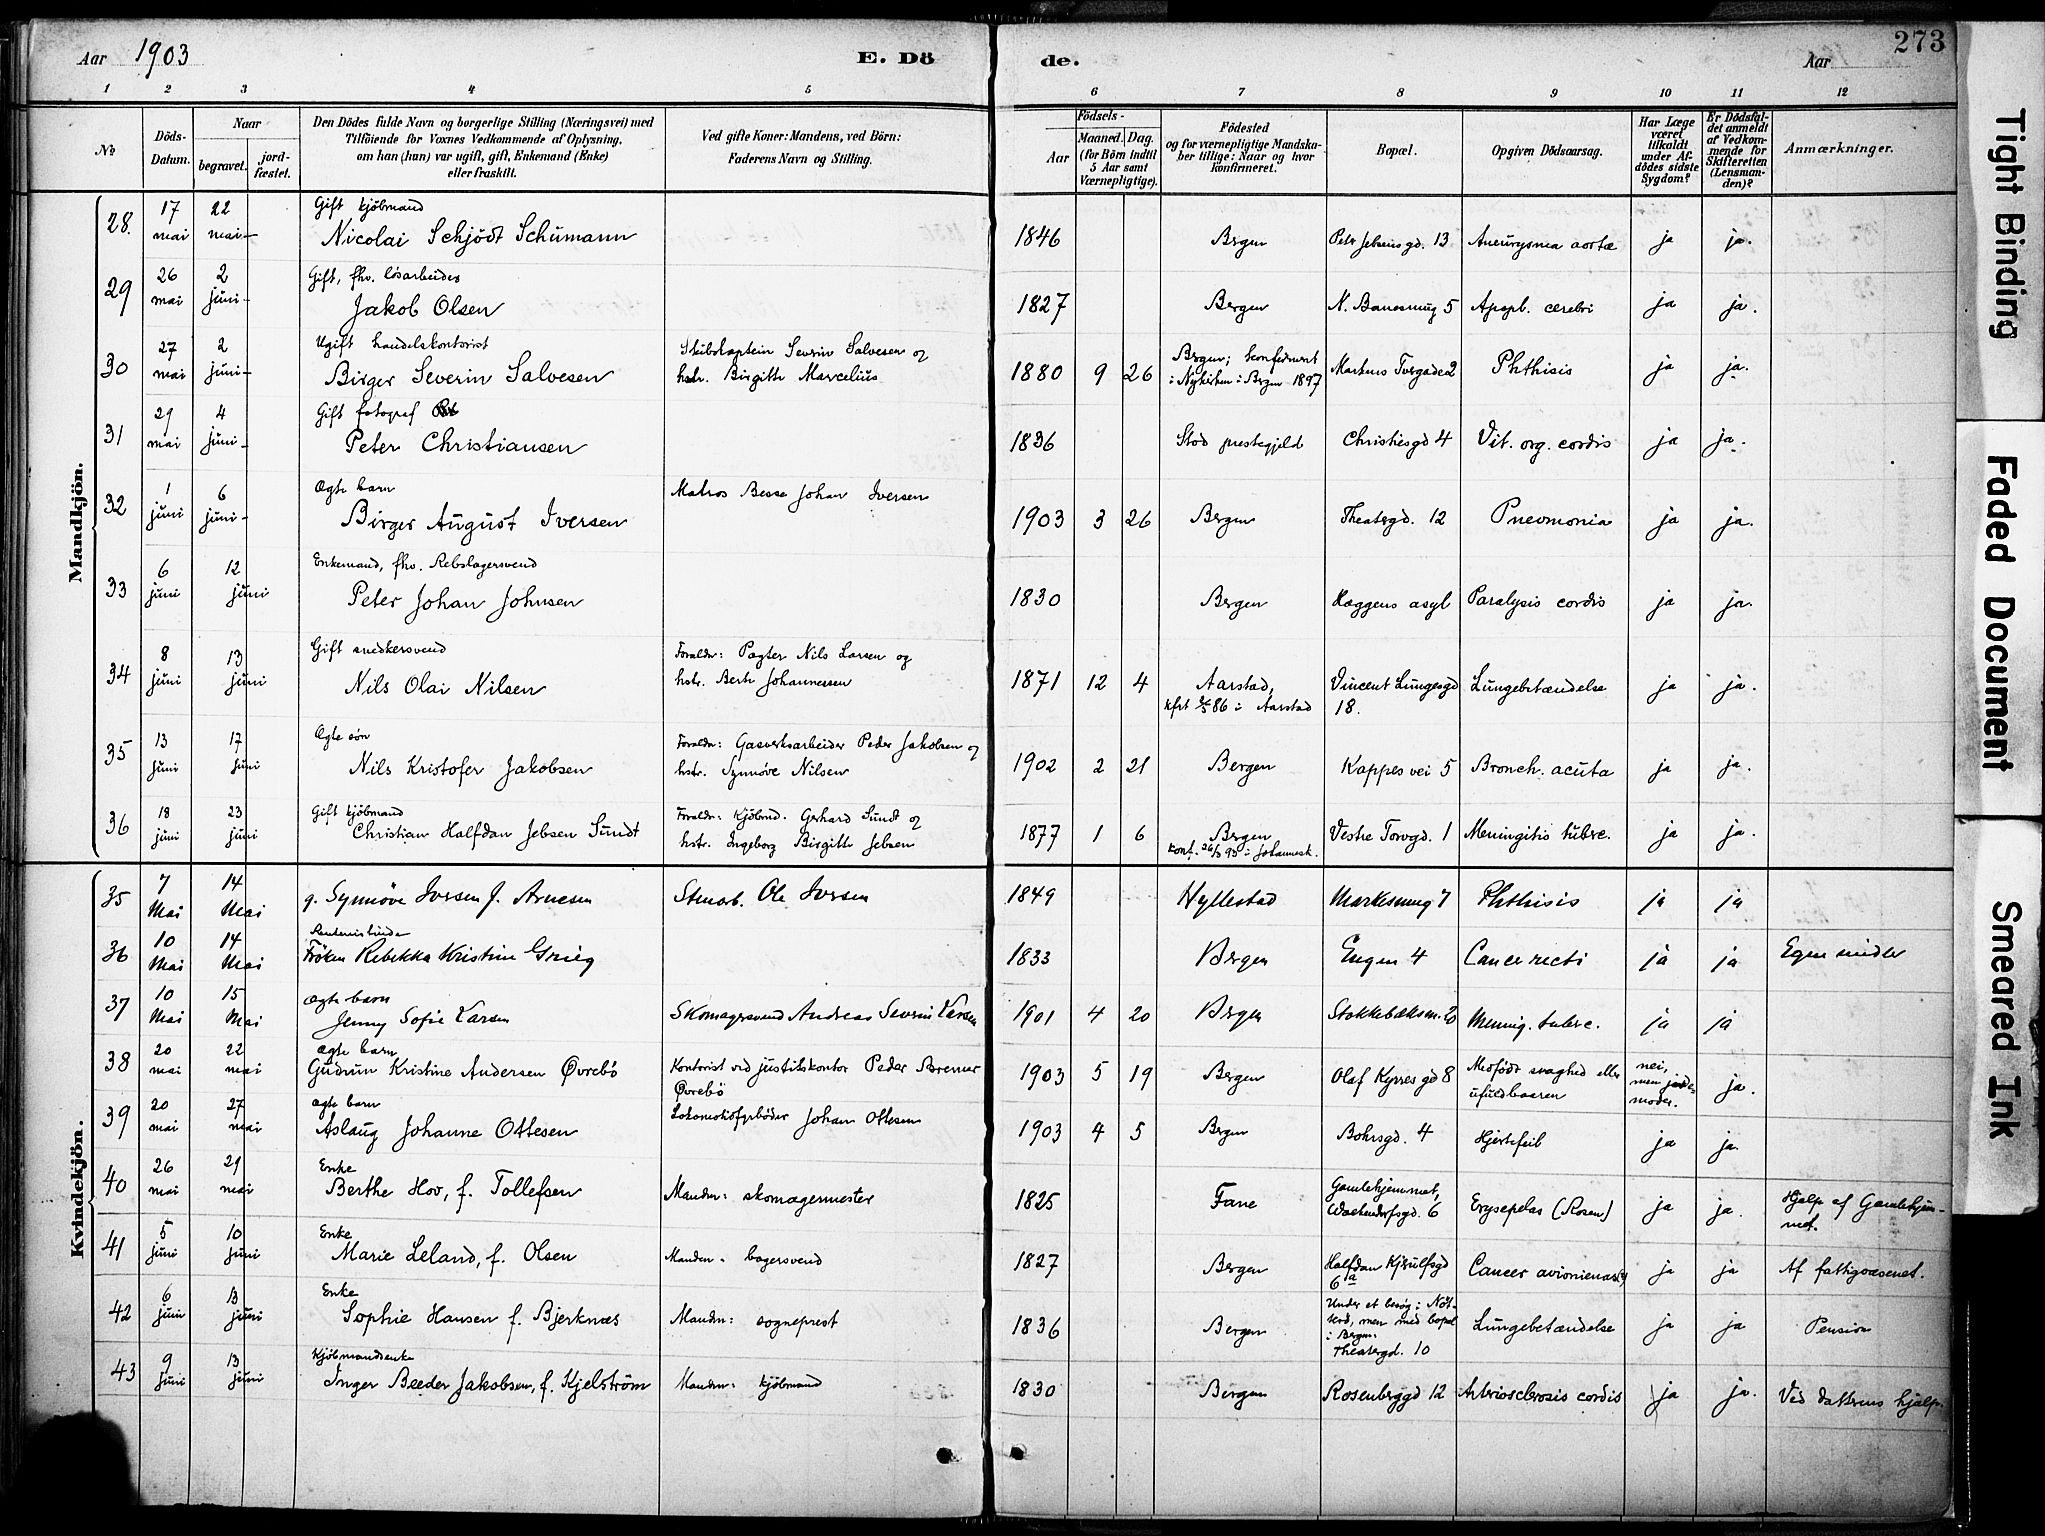 Aar 1903 E. Dö de. Aar 273
1 2 3 4 5 6 7 8 9 10 11 12
No
Döds-Datum.
Naar
begravet.
jord-fæstet.
Den Dödes fulde Navn og borgerlige Stilling (Næringsvei) med
Tilföiende for Voxnes Vedkommende af Oplysning,
om han (hun) var ugift, gift, Enkemand (Enke)
eller fraskilt.
Ved gifte Koner: Mandens, ved Börn:
Faderens Navn og Stilling.
Födsels-
Aar
Maaned. Dag.
(for Börn indtil
5 Aar samt
Værnepligtige).
Födested
og for værnepligtige Mandska-
ber tillige: Naar og hvor
konfirmeret.
Bopæl.
Opgiven Dödsaarsag.
Har Læge
været
tilkaldt
under Af-
dödes sidste
Sygdom?
Er Dödsfal-
det anmeldt
af Vedkom-
mende for
Skifteretten
(Lensman-
den)?
Anmærkninger.
Mandkjön.
28. 17 mai 22 mai Gift kjöbmand
Nicolai Schjödt Schümann 1846 Bergen Peter Jebsens gd. 13 Aneurysma aortæ ja ja.
29 26 mai 2 juni Gift, fhv. løsarbeider
Jakob Olsen 1827 Bergen 5 Apopl. cerebri ja ja.
30 27 mai 2 juni Ugift handelskontorist
Birger Severin Salvesen Skibskaptein Severin Salvesen og
hstr. Birgitte Marcelius 1880 9 26 Bergen; konfirmeret
i Nykirken i Bergen 1897 Markens Tvergade 2 Phthisis ja ja.
31 29 mai 4 juni Gift fotograf
Peter Christiansen 1836 Stod prestegjeld Christiesgd 4 Vit. org. cordis ja ja.
32 1 juni 6 juni Ægte barn
Birger August Iversen Matros Besse Johan Iversen 1903 3 26 Bergen Theatergd. 12 Pnevmonia ja ja.
33 6 juni 12 juni Enkemand, fhv. Rebslagersvend
Peter Johan Johnsen 1830 Bergen Hæggens asyl Paralysis cordis ja ja.
34 8 juni 13 juni Gift snedkersvend
Nils Olai Nilsen Forældr: Pagter Nils Larsen og
hstr. Berte Johannessen 1871 12 4 Aarstad,
kfrt 86 i Aarstad Vincent Lungesgd
18. Lungebetændelse ja ja.
35 13 juni 17 juni Ægte søn
Nils Kristofer Jakobsen Forældr: Gasverksarbeider Peder Jakobsen og
hstr. Synnøve Nilsen 1902 2 21 Bergen Kappes vei 5 Bronch. acuta ja ja.
36 18 juni 23 juni Gift kjöbmand
Christian Halfdan Jebsen Sundt Forældr: Kjöbmd. Gerhard Sundt og
hstr. Ingeborg Birgitte Jebsen 1877 1 6 Bergen
konf. 26/3 93 i Johannesk. Vestre Torvgd. 1 Meningitis tuberc. ja ja.
Kvindekjön.
35 7 Mai 14 Mai g. Synnöve Iversen f. Arnesen Stenarb. Ole Iversen 1849 Hyllestad Markesmug 7 Phthisis ja ja
36 10 Mai 14 Mai Rentenistinde
Fröken Rebekka Kristine Grieg 1833 Bergen Engen 4 Cancer recti ja ja Egne midler
37 10 Mai 15 Mai Ægte barn
Jenny Sofie Larsen Skomagersvend Andreas Severin Larsen 1901 4 20 Bergen 20 Mening. tuberc. ja ja
38 20 mai 22 mai Ægte barn
Gudrun Kristine Andersen Øvrebö Kontorist ved justitskontor Peder Bremer
Øvrebö 1903 5 19 Bergen Olaf Kyrres gd 8 Medfödt svaghed eller
ufuldbaaren nei,
men jorde
moder. ja.
39 20 mai 27 mai Ægte barn
Aslaug Johanne Ottesen Lokomotivfyrbøder Johan Ottesen 1903 4 5 Bergen Bohrsgd. 4 Hjertefeil ja ja.
40 26 mai 29 mai Enke
Berthe Hov, f. Tollefsen Manden: skomagermester 1825 Fane Gamlehjemmet,
Wackendorfsgd. 6 Erysepelas (Rosen) ja ja. Hjelp af Gamlehjem-
met.
41 5 juni 10 juni Enke
Marie Leland, f. Olsen Manden: bagersvend 1827 Bergen Halfdan Kjerulfsgd
6a Cancer ja ja Af fattigvæsenet.
42 6 juni 13 juni Enke
Sophie Hansen f. Bjerknæs Manden: sogneprest 1836 Bergen Under et besøg i Nöt-
terö, men med bopel
i Bergen.
Theatergd. 10 Lungebetændelse ja ja Pension
43 9 juni 13 juni Kjöbmandsenke
Inger Beeder Jakobsen, f. Kjelström Manden: kjöbmand 1830 Bergen Rosenberggd 12 Arteriosclerosis cordis ja ja. Ved datterens hjælp.
Tight Binding
Faded Document
Smeared Ink